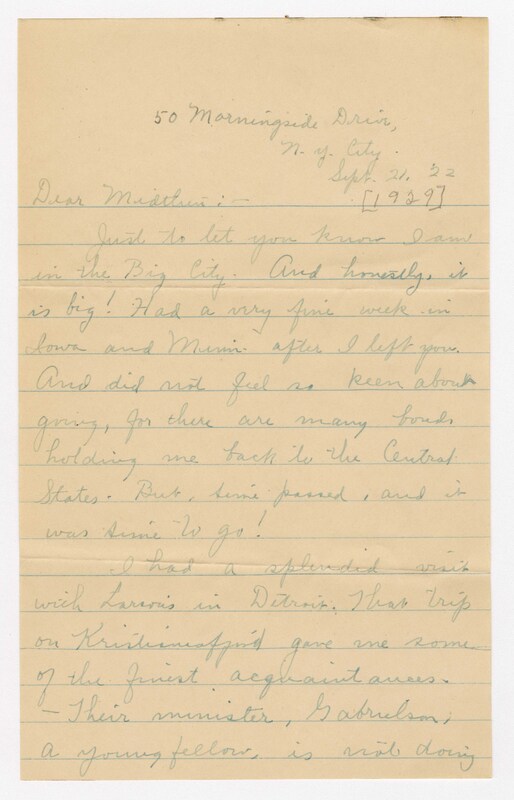 50 Morningside Drive,
N. Y. City.
Sept. 21, '22
[1929]
Dear Midtlien:—
Just to let you know I am
in the Big City. And honestly, it
is big! Had a very fine week in
Iowa and Minn. after I left you.
And did not feel so keen about
going, for there are many bonds
holding me back to the Central
States. But, time passed, and it
was time to go!
I had a splendid visit
with Larsons in Detroit. That trip
on Kristianiafjord gave me some
of the finest acquaintances.
— Their minister, Gabrielson,
a young fellow, is not doing